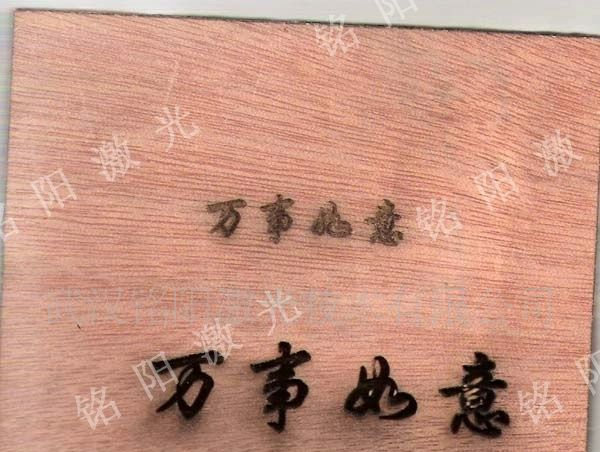 铭阳激光
铭阳激光
铭阳激光
万事如意
武汉铭阳激光技术有限公司
铭阳激光
铭阳激光
万事如意